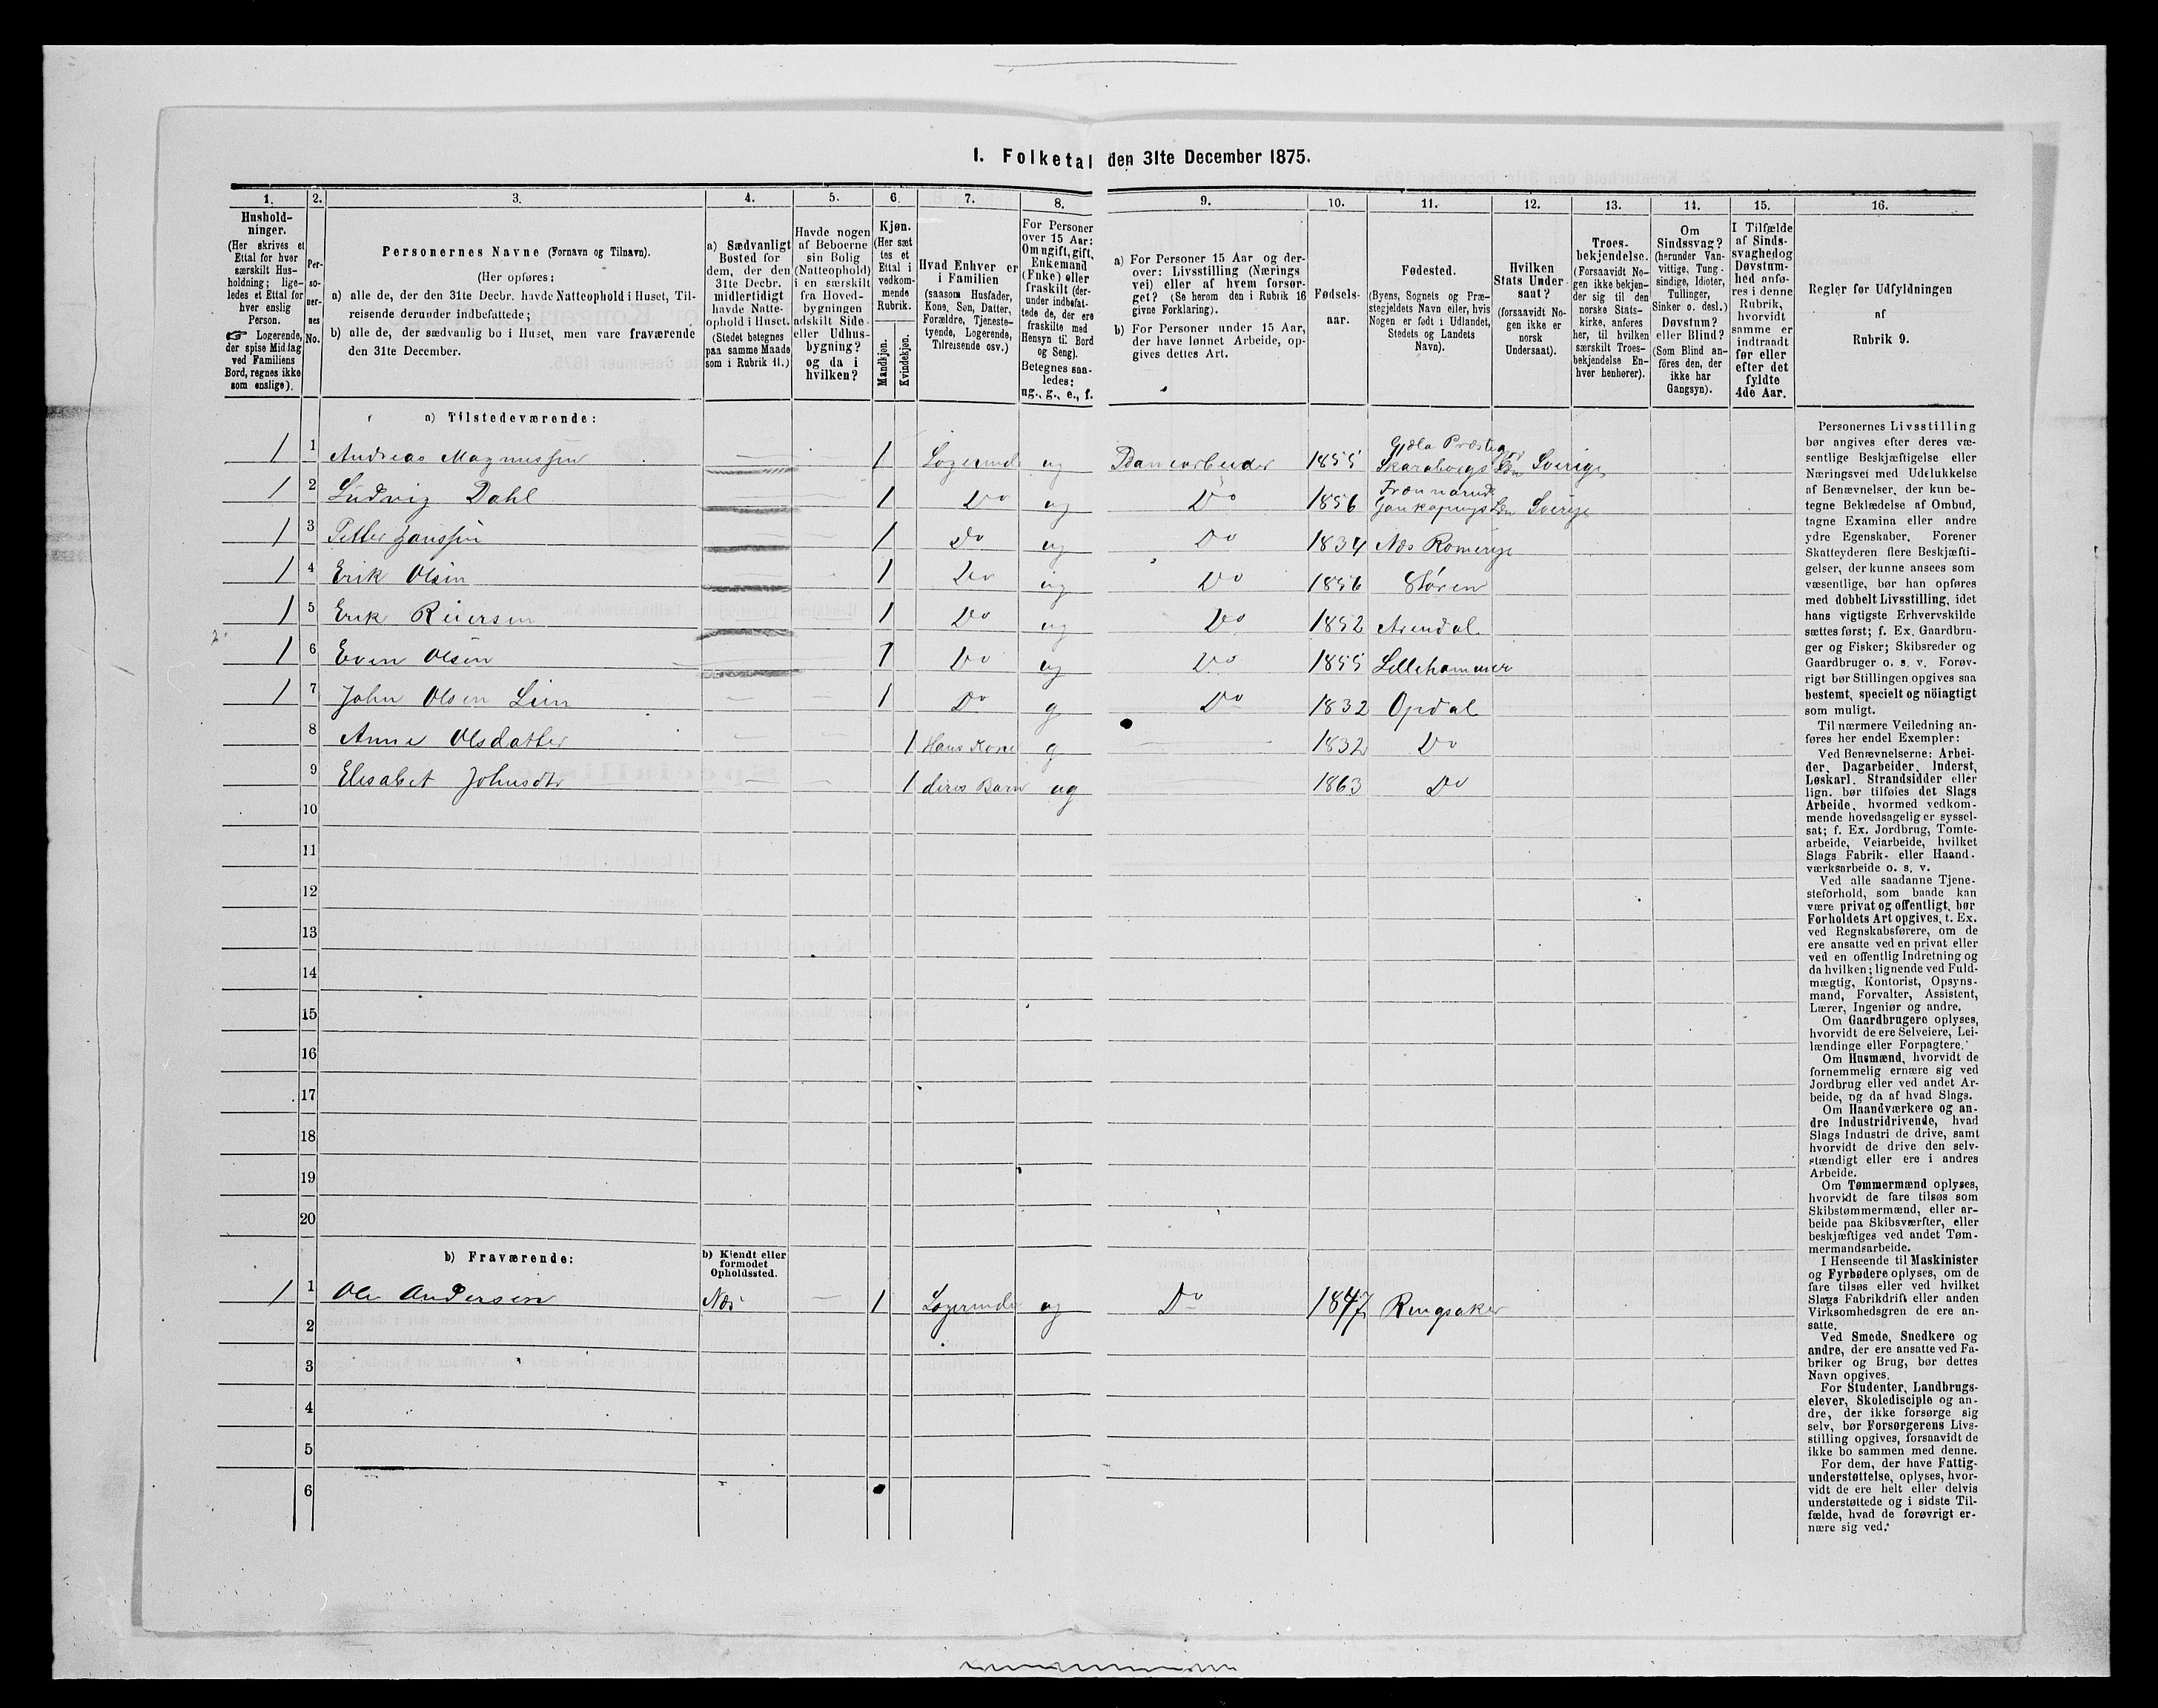 1. Folketal den 31te December 1875.
1. 2. 3. 4. 5. 6. 7. 8. 9. 10. 11. 12. 13. 14. 15. 16.
Hushold-
ninger.
(Her skrives et
Ettal for hver
særskilt Hus-
holdning; lige-
ledes et Ettal for
hver enslig
Person.
Logerende,
der spise Middag
ved Familiens
Bord, regnes ikke
som enslige).
Per-
so-
ner-
nes
No.
Personernes Navne (Fornavn og Tilnavn).
(Her opføres:
a) alle de, der den 31te Decbr. havde Natteophold i Huset, Til-
reisende derunder indbefattede;
b) alle de, der sædvanlig bo i Huset, men vare fraværende
den 31te December.
a) Sædvanligt
Bosted for
dem, der den
31te Decbr.
midlertidigt
havde Natte-
ophold i Huset.
(Stedet betegnes
paa samme Maade
som i Rubrik 11.)
Havde nogen
af Beboerne
sin Bolig
(Natteophold)
i en særskilt
fra Hoved-
bygningen
adskilt Side-
eller Udhus-
bygning?
og da i
hvilken?
Kjøn.
(Her sæt-
tes et
Ettal i
vedkom-
mende
Rubrik.
Mandkjøn.
Kvindekjøn.
Hvad Enhver er
i Familien
(saasom Husfader,
Kone, Søn, Datter,
Forældre, Tjeneste-
tyende, Logerende,
Tilreisende osv.)
For Personer
over 15 Aar:
Om ugift, gift,
Enkemand
(Enke) eller
fraskilt (der-
under indbefat-
tede de, der ere
fraskilte med
Hensyn til Bord
og Seng).
Betegnes saa-
ledes:
ug., g., e., f.
a) For Personer 15 Aar og der-
over: Livsstilling (Nærings
vei) eller af hvem forsør-
get? (Se herom den i Rubrik 16
givne Forklaring).
b) For Personer under 15 Aar,
der have lønnet Arbeide, op-
gives dettes Art.
Fødsels-
aar.
Fødested.
(Byens, Sognets og Præ-
stegjeldets Navn eller, hvis
Nogen er født i Udlandet,
Stedets og Landets
Navn).
Hvilken
Stats Under
saat?
(forsaavidt No-
gen ikke er
norsk
Undersaat).
Troes-
bekjendelse.
(Forsaavidt No-
gen ikke bekjen-
der sig til den
norske Stats-
kirke, anføres
her, til hvilken
særskilt Troes-
bekjendelse En-
hver henhører).
Om
Sindssvag?
(herunder Van-
vittige, Tung-
sindige, Idioter,
Tullinger,
Sinker o. desl.)
Døvstum?
eller Blind?
(Som Blind an-
føres den, der
ikke har
Gangsyn).
I Tilfælde
af Sinds-
svaghed og
Døvstum-
hed anfø-
res i denne
Rubrik,
hvorvidt
samme er
indtraadt
før eller
efter det
fyldte
4de Aar.
Regler for Udfyldningen
af
Rubrik 9.
a) Tilstedeværende:
1 1 Andreas Magnussen 1 Logerende ug Banearbeider 1855 Skaraborgs Län Sverige
1 2 Ludvig Dahl 1 Do ug Do 1856 Sverige
1 3 Petter Janssen 1 Do ug Do 1834 Næs Romerige
1 4 Erik Olsen 1 Do ug Do 1856 Støren
1 5 Erik Reiersen 1 Do ug Do 1852 Arendal
1 6 Even Olsen 1 Do ug Do 1855 Lillehammer
1 7 John Olsen Lien 1 Do g Do 1832 Opdal
8 Anne Olsdatter 1 Hans Kone g 1832 Do
9 Elisabet Johnsdtr 1 deres Barn ug 1863 Do
10
11
12
13
14
15
16
17
18
19
20
b) Fraværende:
b) Kjendt eller
formodet
Opholdssted.
1 1 Ole Andersen Næs 1 Logerende ug Do 1847 Ringsaker
2
3
4
5
6
Personernes Livsstilling
bør angives efter deres væ-
sentlige Beskjæftigelse eller
Næringsvei med Udelukkelse
af Benævnelser, der kun be-
tegne Beklædelse af Ombud,
tagne Examina eller andre
ydre Egenskaber. Forener
Skatteyderen flere Beskjæfti-
gelser, der kunne ansees som
væsentlige, bør han opføres
med dobbelt Livsstilling, idet
hans vigtigste Erhvervskilde
sættes først; f. Ex. Gaardbru-
ger og Fisker; Skibsreder og
Gaardbruger o. s. v. Forøv-
rigt bør Stillingen opgives saa
bestemt, specielt og nöiagtigt
som muligt.
Til nærmere Veiledning an-
føres her endel Exempler:
Ved Benævnelserne: Arbei-
der, Dagarbeider, Inderst,
Løskarl, Strandsidder eller
lign. bør tilføies det Slags
Arbeide, hvormed vedkom-
mende hovedsagelig er syssel-
sat; f. Ex. Jordbrug, Tomte-
arbeide, Veiarbeide, hvilket
Slags Fabrik- eller Haand-
værksarbeide o. s. v.
Ved alle saadanne Tjene-
steforhold, som baade kan
være privat og offentligt, bør
Forholdets Art opgives, t. Ex.
ved Regnskabsførere, om de
ere ansatte ved en privat eller
ved en offentlig Indretning og
da hvilken; lignende ved Fuld-
mægtig, Kontorist, Opsyns-
mand, Forvalter, Assistent,
Lærer, Ingeniør og andre.
Om Gaardbrugere oplyses,
hvorvidt de ere Selveiere, Lei-
lændinge eller Forpagtere.
Om Husmænd, hvorvidt de
fornemmelig ernære sig ved
Jordbrug eller ved andet Ar-
beide, og da af hvad Slags.
Om Haandværkere og an-
dre Industridrivende, hvad
Slags Industri de drive, samt
hvorvidt de drive den selv-
stændigt eller ere i andres
Arbeide.
Om Tømmermænd oplyses,
hvorvidt de fare tilsøs som
Skibstømmermænd, eller ar-
beide paa Skibsværfter, eller
beskjæftiges ved andet Tøm-
mermandsarbeide.
I Henseende til Maskinister
og Fyrbødere oplyses, om de
fare tilsøs eller ved hvilket
Slags Fabrikdrift eller anden
Virksomhedsgren de ere an-
satte.
Ved Smede, Snedkere og
andre, der ere ansatte ved Fa-
briker og Brug, bør dettes
Navn opgives.
For Studenter, Landbrugs-
elever, Skoledisciple og an-
dre, der ikke forsørge sig
selv, bør Forsørgerens Livs-
stilling opgives, forsaavidt de
ikke bo sammen med denne.
For dem, der have Fattig-
understøttelse, oplyses, hvor-
vidt de ere helt eller delvis
understøttede og i sidste Til-
fælde, hvad de forøvrigt er-
nære sig ved.